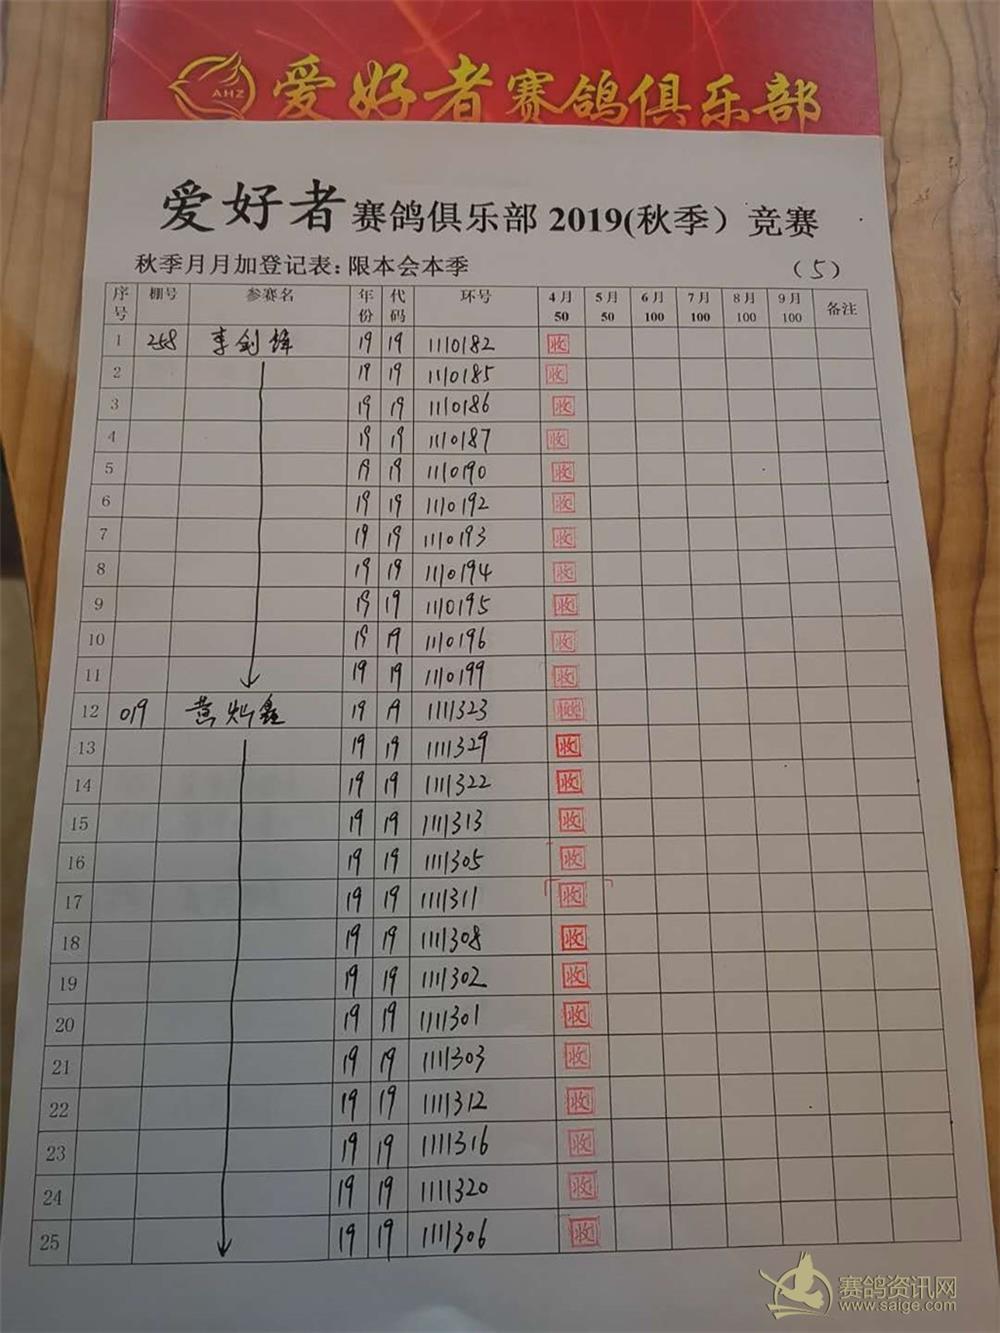 AHZ 爱好者赛鸽俱乐部
爱好者赛鸽俱乐部2019(秋季）竞赛
秋季月月加登记表：限本会本季 （5）
序号 棚号 参赛名 年份 代码 环号 4月50 5月50 6月100 7月100 8月100 9月100 备注
1 258 李剑锋 19 19 1110182 收
2 19 19 1110185 收
3 19 19 1110186 收
4 19 19 1110187 收
5 19 19 1110190 收
6 19 19 1110192 收
7 19 19 1110193 收
8 19 19 1110194 收
9 19 19 1110195 收
10 19 19 1110196 收
11 19 19 1110199 收
12 019 黄灿鑫 19 19 1111323 收
13 19 19 1111329 收
14 19 19 1111322 收
15 19 19 1111313 收
16 19 19 1111305 收
17 19 19 1111311 收
18 19 19 1111308 收
19 19 19 1111302 收
20 19 19 1111301 收
21 19 19 1111303 收
22 19 19 1111312 收
23 19 19 1111316 收
24 19 19 1111320 收
25 19 19 1111306 收
赛鸽资讯网
www.saige.com